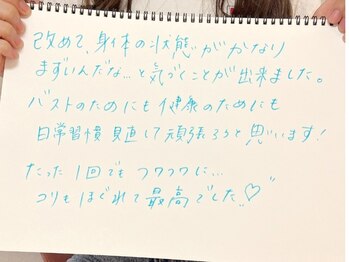 改めて、身体の状態がかなり
まずいんだな…と気づくことが出来ました。
バストのためにも健康のためにも
日常習慣見直して頑張ろうと思います!
たった1回でもフワフワに…
コリもほぐれて最高でした♡